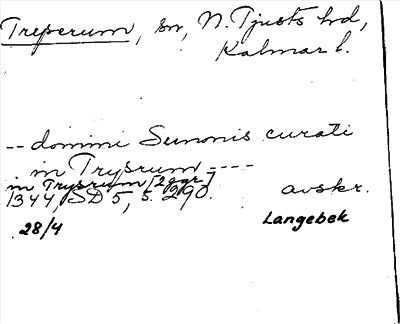 Treperum, sn, N. Tjusts hd,
Kalmar l.
-- domini Sunonis curati
in Trysrum ----
in Trysrum [2 ggr]
1344, SD 5, s. 290. avskr.
28/4 Langebek